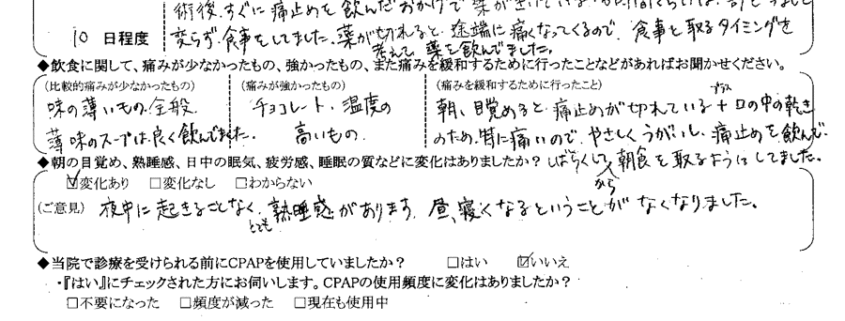 術後、すぐに痛止めを飲んだおかげで薬がきいている
10 日程度
変らず食事をしてました。薬が切れると途端に痛くなってくるので、食事を取るタイミングを
考えて、薬を飲んでました。
◆飲食に関して、痛みが少なかったもの、強かったもの、また痛みを緩和するために行ったことなどがあればお聞かせください。
(比較的痛みが少なかったもの) (痛みが強かったもの) (痛みを緩和するために行ったこと)
味の薄いもの全般
薄味のスープは良く飲んでました。
チョコレート、温度の
高いもの
朝、目覚めると、痛止めが切れている+口の中の乾き
プラス
のため、特に痛いので、やさしくうがいし、痛止めを飲んで、
しばらくしてから朝食を取るようにしてました。
◆朝の目覚め、熟睡感、日中の眠気、疲労感、睡眠の質などに変化はありましたか?
☑変化あり □変化なし □わからない
(ご意見) 夜中に起きることなく、とても熟睡感があります。昼、寝くなるということがなくなりました。
◆当院で診療を受けられる前にCPAPを使用していましたか? □はい ☑いいえ
・『はい』にチェックされた方にお伺いします。CPAPの使用頻度に変化はありましたか?
□不要になった □頻度が減った □現在も使用中